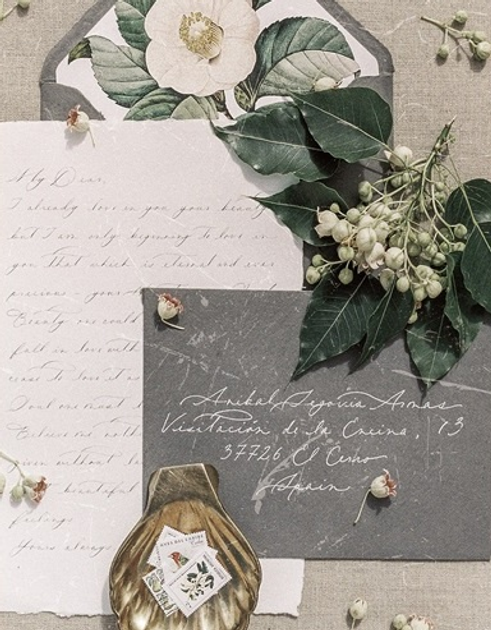 My Dear,
I already love in you your beauty
but I am only beginning to love in
you that which is eternal and ever
precious your
Beauty one could
fall in love with
cease to love it as
Soul one must
Believe me
even without
beautiful
feelings
Yours always
Anibal Segovia Armas
Visitación de la Encina, 73
37726 El Cerro
Spain